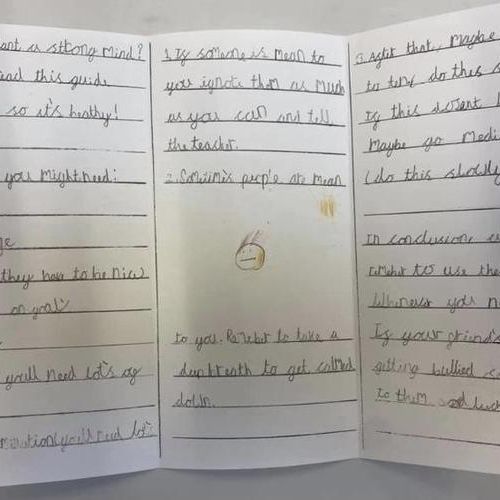 ant a strong mind?
ead this guide
so it's healthy!
you might need:
they have to be nice
on goal
you'll need lot's og
you'll need lot's
1. Ig someone is mean to
you ignore them as much
as you can and tell
the teacher.
2. Sometimes peop'e are mean
to you. Rember to take a
deep breath to get calmed
down.
3. Agter that, maybe
to tery do thes s
Ig this dosent
Maybe go Medi
(do this slowly
In conclusion
remeber to use the
Whenever you n
Ig your griend's
getting bullied
to them